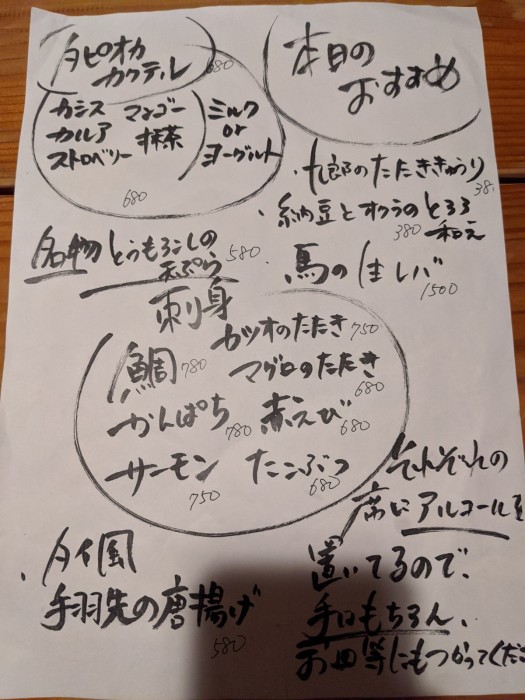 本日の
おすすめ
タピオカ
カクテル 680
カシス マンゴー ミルク
カルア 抹茶 or
ストロベリー ヨーグルト
680
・九郎のたたききゅうり
38
・納豆とオクラのとろろ
380 和え
・馬の生レバ
1500
名物とうもろこしの
天ぷら 580
刺身
カツオのたたき 750
鯛 780 マグロのたたき
680
かんぱち 780 赤えび 680
サーモン 750 たこぶつ 680
・タイ風
手羽先の唐揚げ
580
それぞれの
席にアルコール
置いてるので、
手はもちろん、
お皿等にもつかってくだ